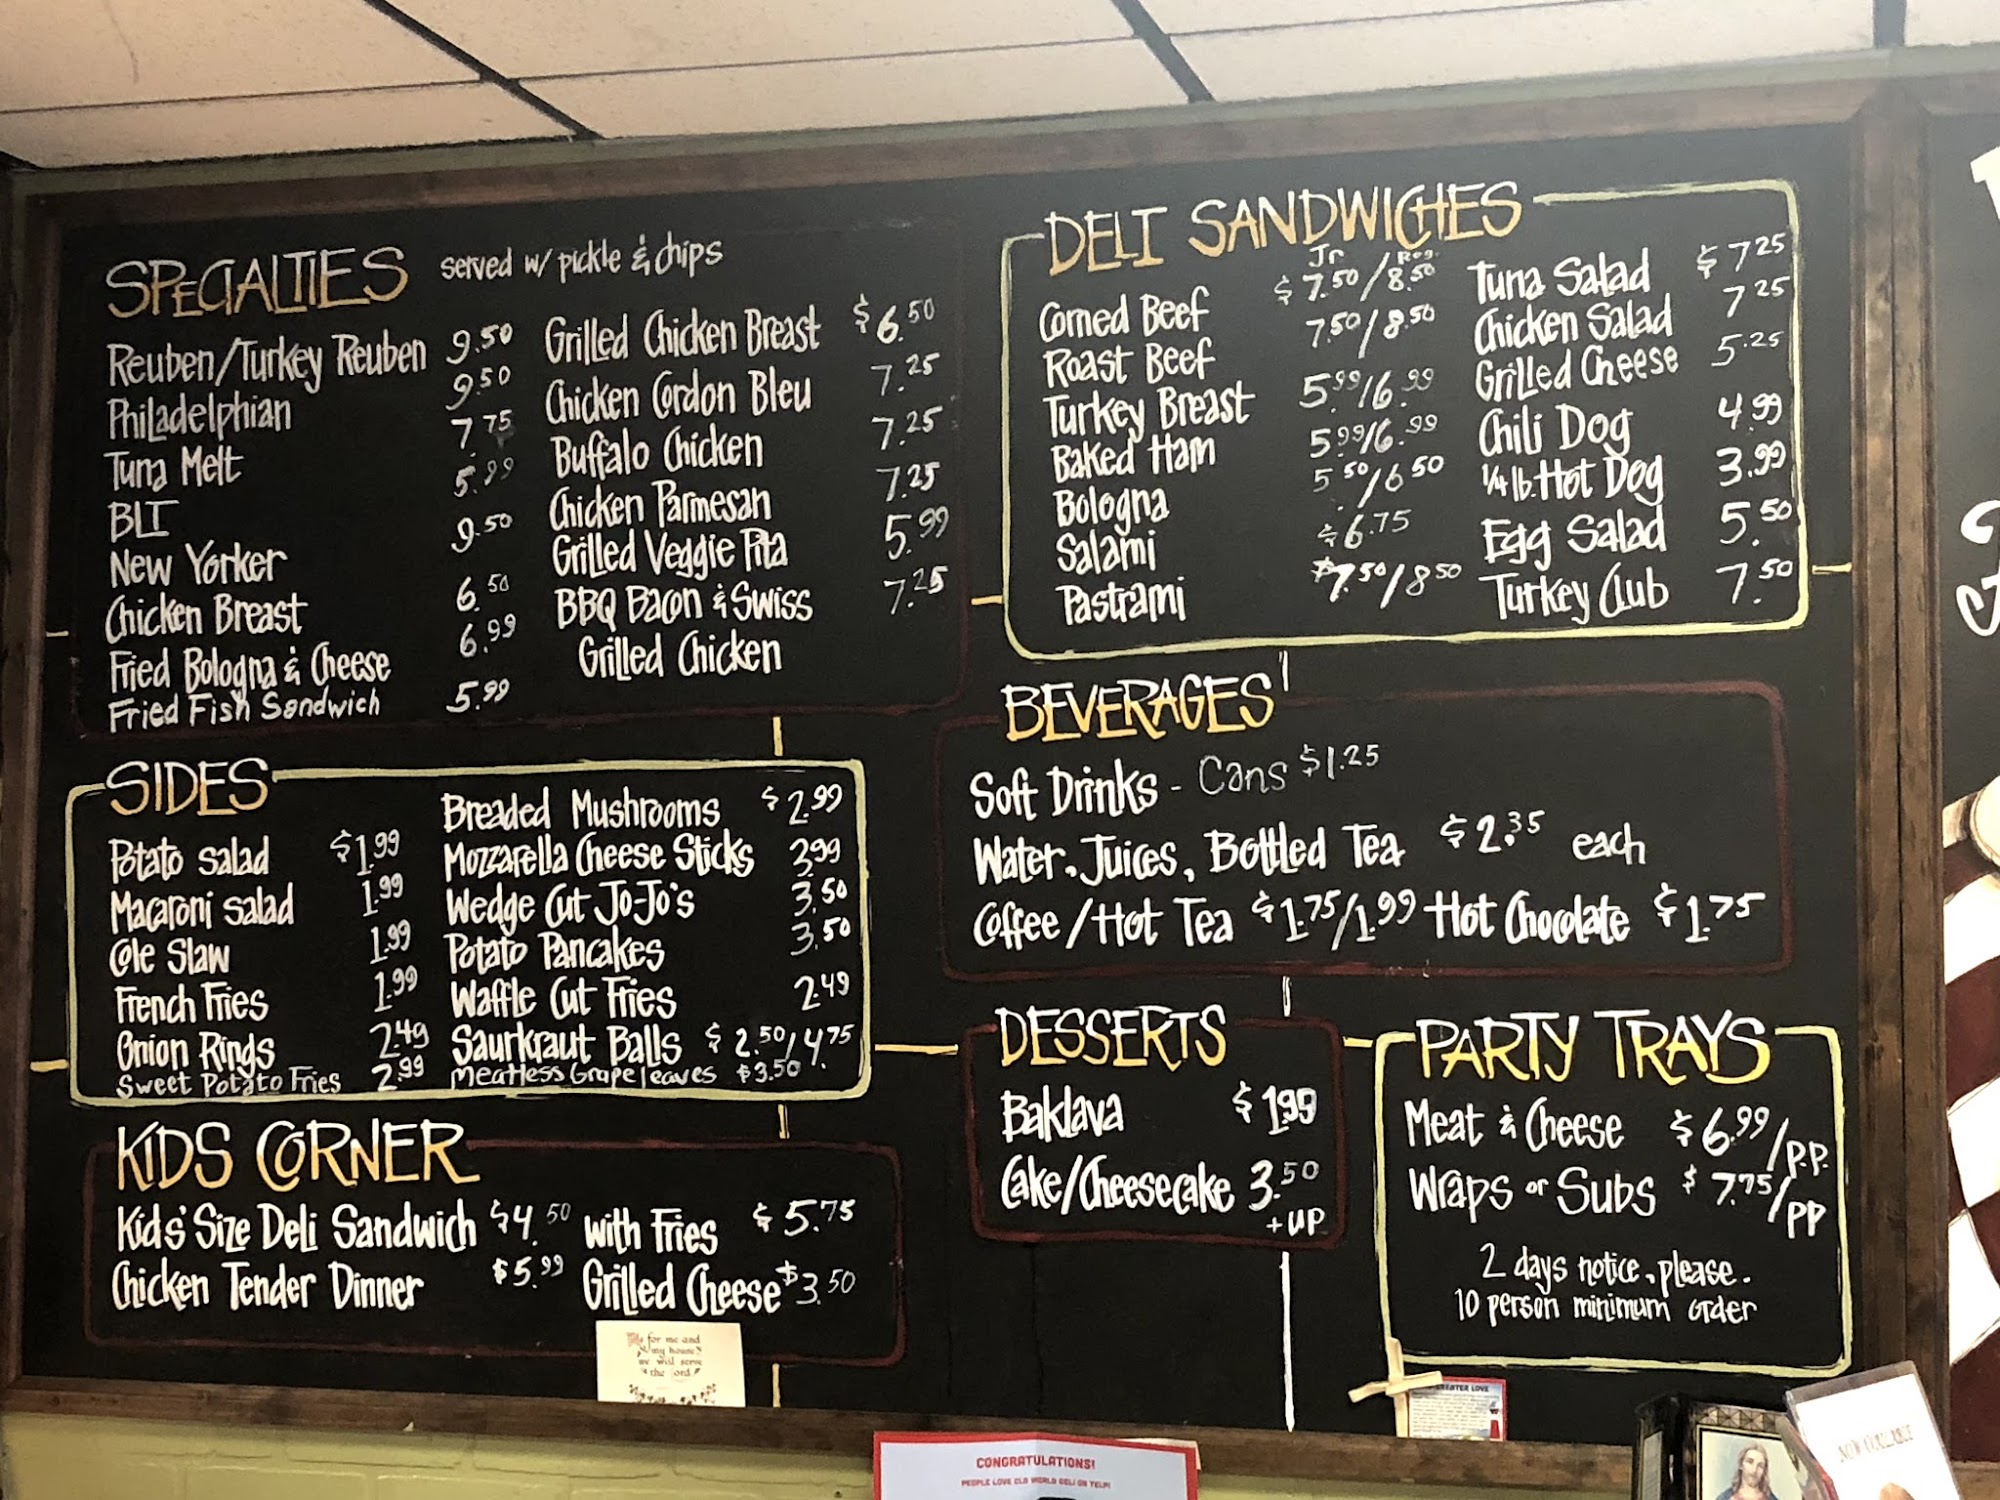 SPECIALTIES served w/ pickle & chips
Reuben/Turkey Reuben 9.50
Philadelphian 9.50
Tuna Melt 7.75
BLT 5.99
New Yorker 9.50
Chicken Breast 6.50
Fried Bologna & Cheese 6.99
Fried Fish Sandwich 5.99
Grilled Chicken Breast $6.50
Chicken Cordon Bleu 7.25
Buffalo Chicken 7.25
Chicken Parmesan 7.25
Grilled Veggie Pita 5.99
BBQ Bacon & Swiss 7.25
Grilled Chicken
DELI SANDWICHES
Jr Reg.
Corned Beef $7.50/8.50
Roast Beef 7.50/8.50
Turkey Breast 5.99/6.99
Baked Ham 5.99/6.99
Bologna 5.50/6.50
Salami $6.75
Pastrami $7.50/8.50
Tuna Salad $7.25
Chicken Salad 7.25
Grilled Cheese 5.25
Chili Dog 4.99
1/4 lb. Hot Dog 3.99
Egg Salad 5.50
Turkey Club 7.50
SIDES
Potato Salad $1.99
Macaroni Salad 1.99
Cole Slaw 1.99
French Fries 1.99
Onion Rings 2.49
Sweet Potato Fries 2.99
Breaded Mushrooms $2.99
Mozzarella Cheese Sticks 3.99
Wedge Cut Jo-Jo's 3.50
Potato Pancakes 3.50
Waffle Cut Fries 2.49
Saurkraut Balls $2.50/4.75
Meatless Grape leaves $3.50
BEVERAGES
Soft Drinks - Cans $1.25
Water, Juices, Bottled Tea $2.35 each
Coffee/Hot Tea $1.75/1.99 Hot Chocolate $1.75
KIDS CORNER
Kids' Size Deli Sandwich $4.50 with Fries $5.75
Chicken Tender Dinner $5.99 Grilled Cheese $3.50
DESSERTS
Baklava $1.99
Cake/Cheesecake 3.50
+ UP
PARTY TRAYS
Meat & Cheese $6.99/P.P.
Wraps or Subs $7.75/PP
2 days notice, please.
10 person minimum order
As for me and
my house
we will serve
the Lord
CONGRATULATIONS!
PEOPLE LOVE OLD WORLD DELI ON YELP!